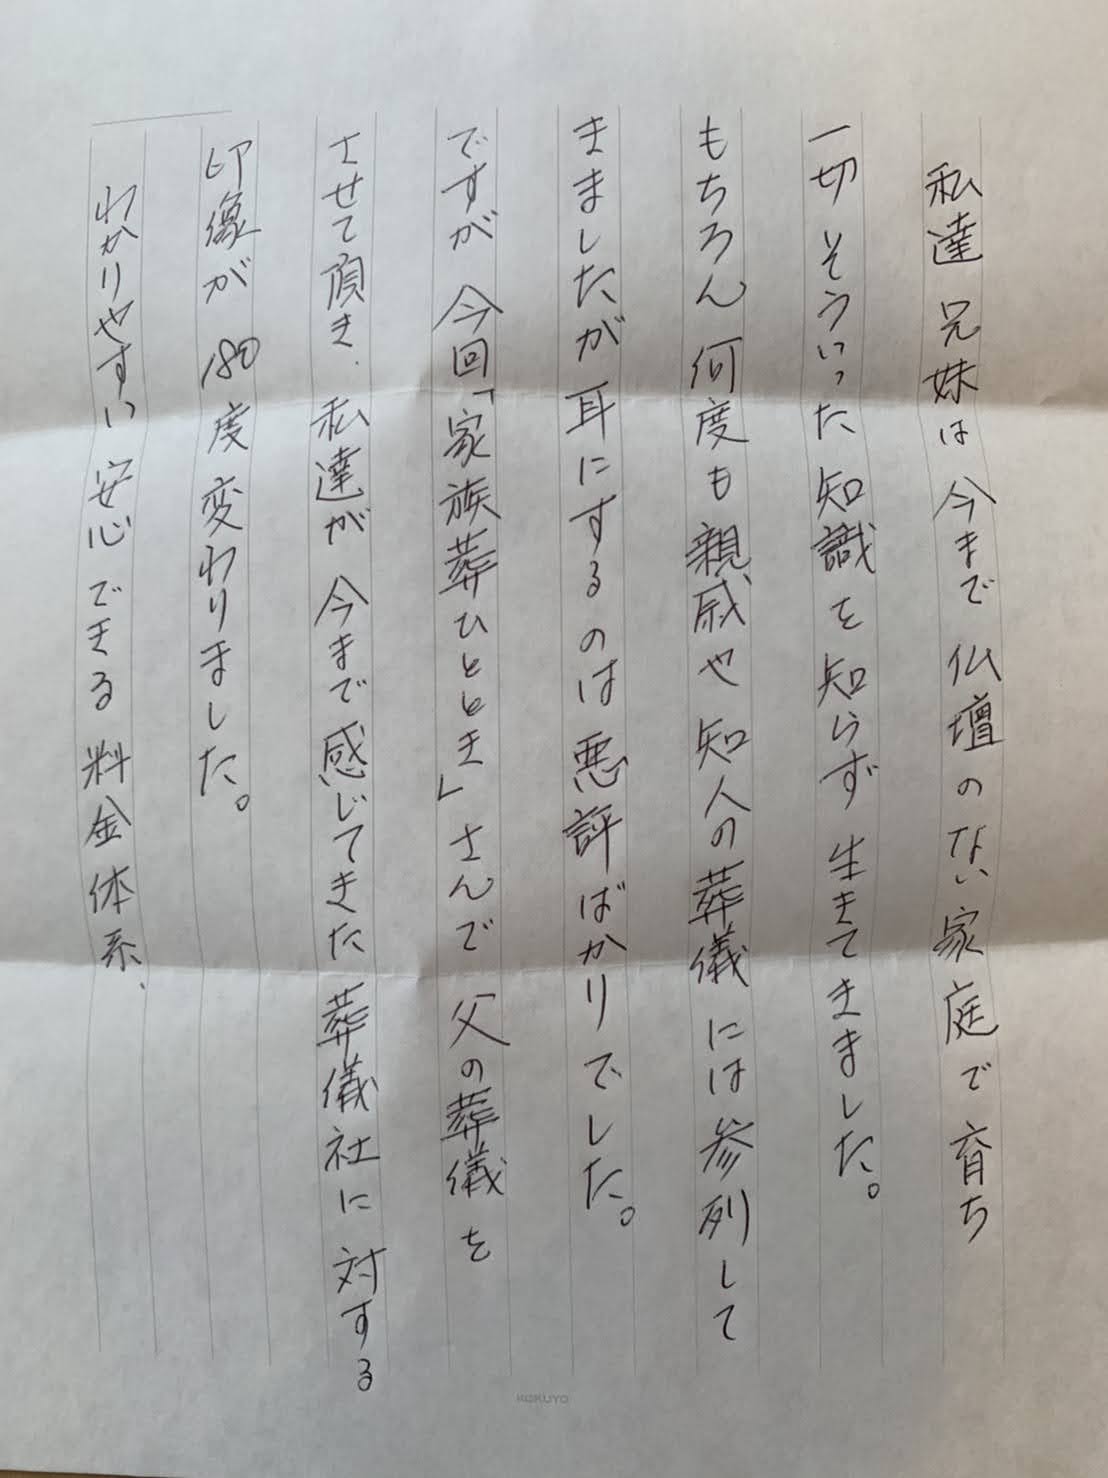 私達兄妹は今まで仏壇のない家庭で育ち
一切そういった知識を知らず生きてきました。
もちろん何度も親戚や知人の葬儀には参列して
きましたが耳にするのは悪評ばかりでした。
ですが今回「家族葬ひととき」さんで父の葬儀を
させて頂き、私達が今まで感じてきた葬儀社に対する
印像が180度変わりました。
わかりやすい安心できる料金体系、
KOKUYO